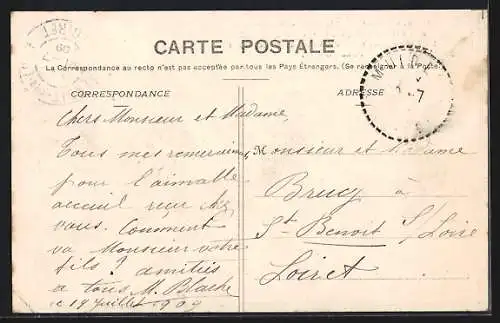 CARTE POSTALE
La Correspondance au recto n'est pas acceptée par tous les Pays Étrangers. (Se renseigner à la Poste)
CORRESPONDANCE
Chers Monsieur et Madame,
Tous mes remerciements
pour l'aimable
acceuil reçu chez
vous. Comment
va Monsieur votre
fils? amitiés
a tous M. Blache
le 19 juillet 1909
ADRESSE
Monsieur et Madame
Brucy à
St Benoit S/Loire
Loiret